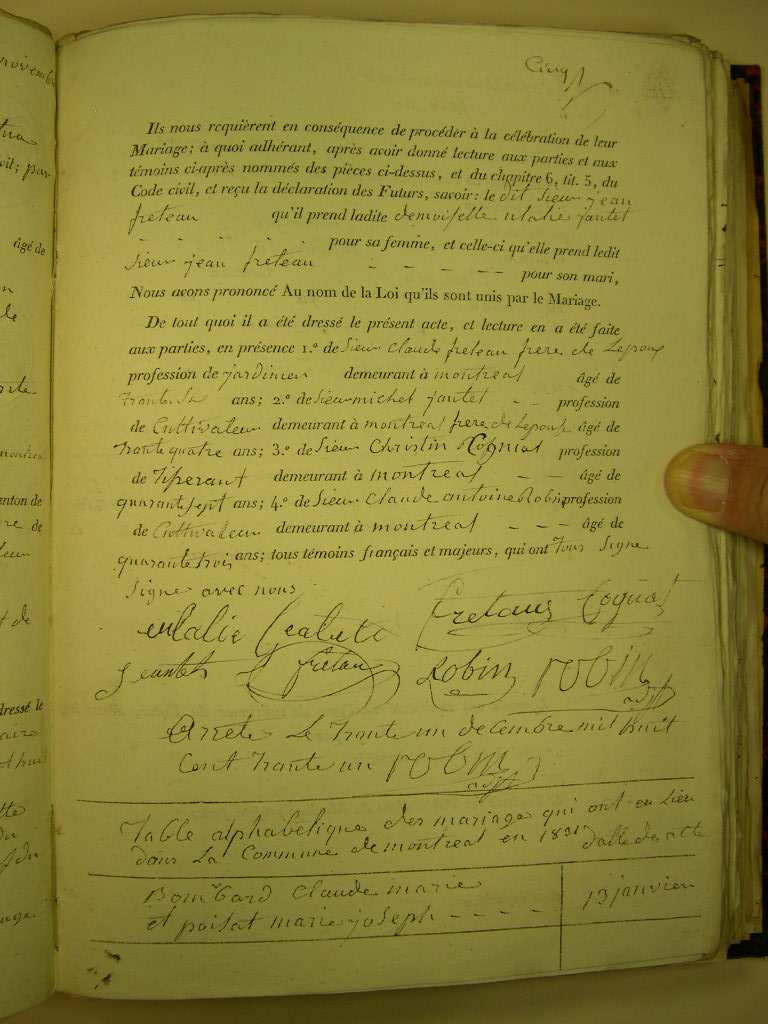 novembre
Cinq
Ils nous requièrent en conséquence de procéder à la célébration de leur
Mariage; à quoi adhérant, après avoir donné lecture aux parties et aux
témoins ci-après nommés des pièces ci-dessus, et du chapitre 6, tit. 5, du
Code civil, et reçu la déclaration des Futurs, savoir: le dit Sieur jean
freteau qu'il prend ladite demoiselle ulalie jantet
- - - - pour sa femme, et celle-ci qu'elle prend ledit
Sieur jean freteau - - - - - pour son mari,
Nous avons prononcé Au nom de la Loi qu'ils sont unis par le Mariage.
De tout quoi il a été dressé le présent acte, et lecture en a été faite
aux parties, en présence 1.º de Sieur Claude freteau frere de Lepoux
profession de jardinier demeurant à montreal âgé de
trante ans; 2.º de Sieur michel jantet - - profession
de Cultivateur demeurant à montreal frere de Lepouse âgé de
trante quatre ans; 3.º de Sieur Christin Cogniat profession
de Tiserant demeurant à montreal - - âgé de
quarante sept ans; 4.º de Sieur Claude antoine Robin profession
de Cultivateur demeurant à montreal - - - âgé de
quarante trois ans; tous témoins français et majeurs, qui ont Tous Signe
Signe avec nous
eulalie Freteau Cogniat
Robin robin
adjt
Arrete Le trante un decembre mil huit
Cent trante un robin
adjt
Table alphabetique des mariages qui ont eu Lieu
dans La Commune de montreal en 1831 datte des acte
Bombard Claude marie 13 janvier
et poisat marie joseph - - - -
âgé de
dressé le